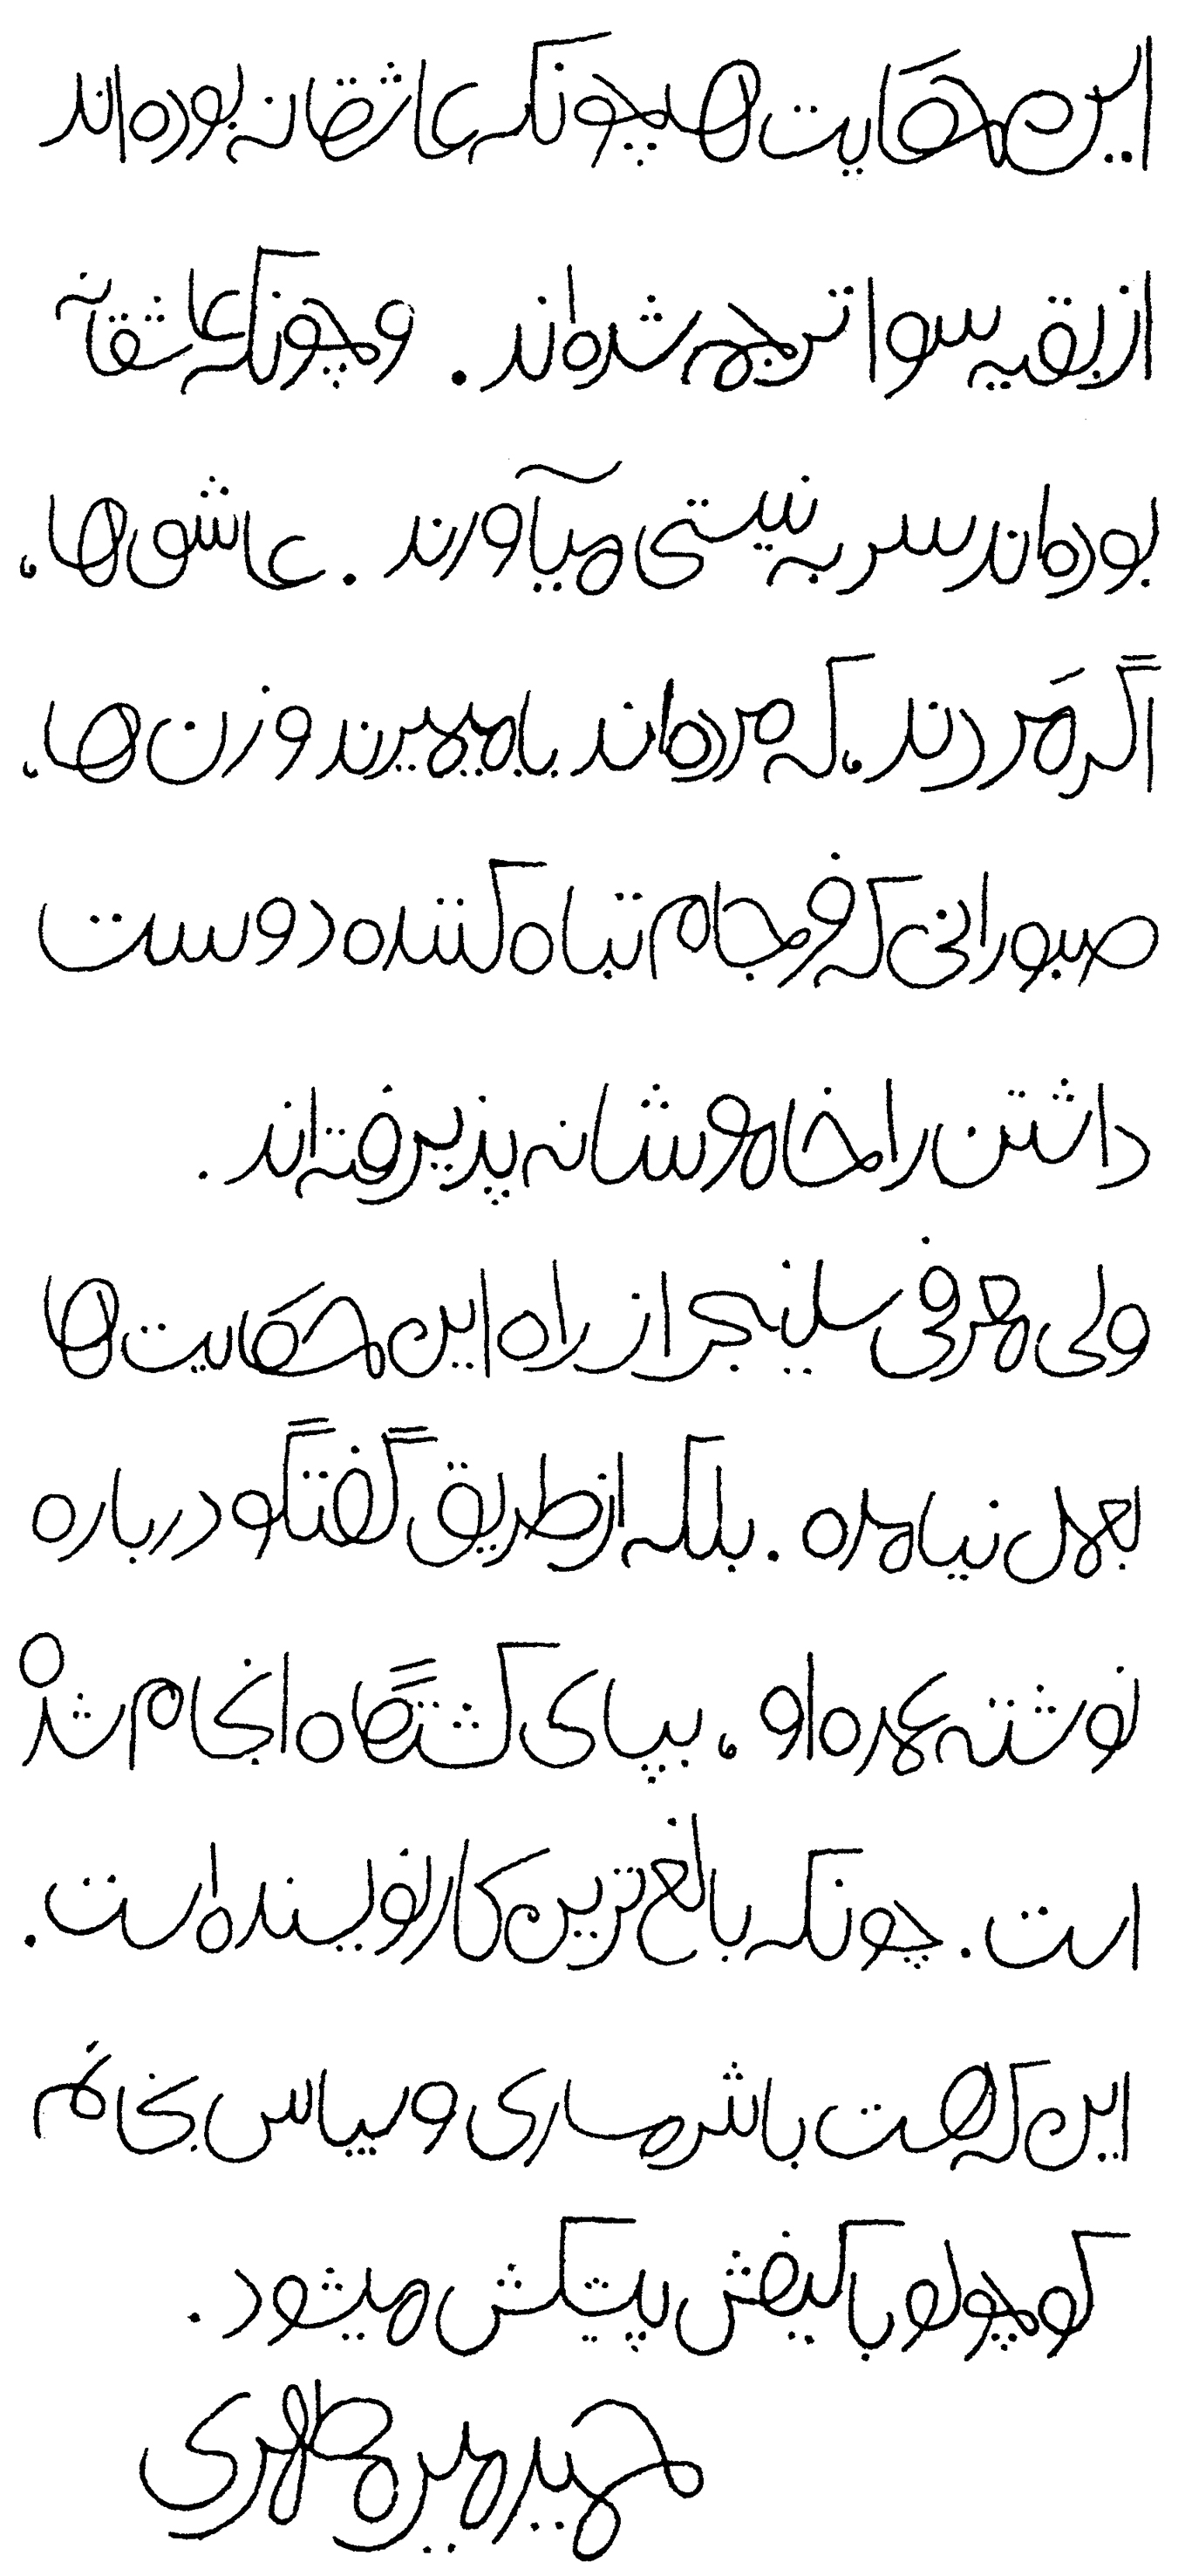 این حکایت ها چونکه عاشقانه بوده‌اند
از بقیه سوا ترجمه شده‌اند . و چونکه عاشقانه
بوده‌اند سر به نیستی میآورند . عاشق ها،
اگر مَردند، که مرده‌اند یا میمیرند و زن ها،
صبورانی که فرجام تباه کننده دوست
داشتن را خاموشانه پذیرفته‌اند .
ولی معرفی سلینجر از راه این حکایت ها
بعمل نیامده . بلکه از طریق گفتگو درباره
نوشته عمده او ، بپای کشتگاه انجام شده
است . چونکه بالغ ترین کار نویسنده است .
این که هست با شرمساری و سپاس بخانم
کوچولو با کیفش پیشکش میشود .
حمید میرمطهری